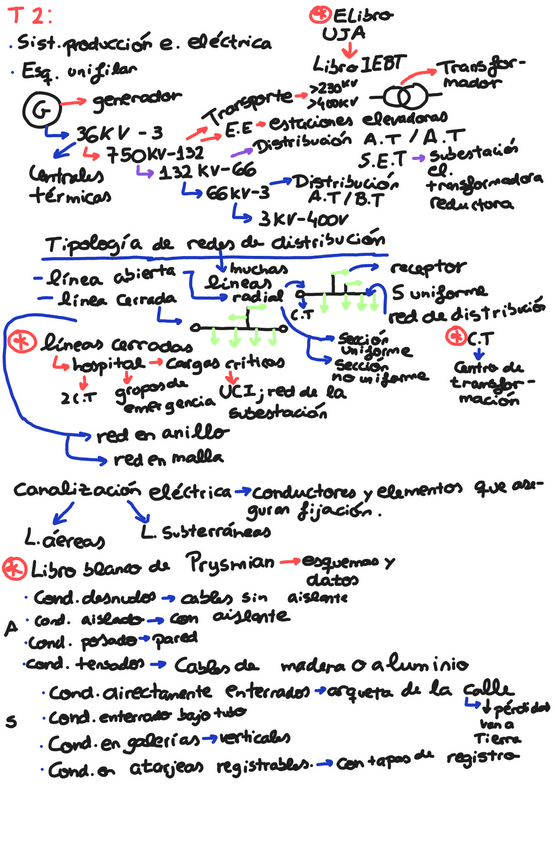 T 2:
* ELibro
UJA
· Sist. producción e. eléctrica
Libro IEBT
· Esq. unifilar
>230KV
>400KV
Transfor-
mador
G → generador
Transporte
36KV-3
E.E → estaciones elevadoras
750KV-132
Distribución A.T/A.T
Centrales
térmicas
132 KV-66
S.E.T → Subestació
el.
transformadora
reductora
66KV-3 → Distribución
A.T/B.T
3KV-400V
Tipología de redes de distribución
- línea abierta
muchas
líneas
radial
receptor
- línea Cerrada
C.T
S uniforme
red de distribució
* líneas cerradas
Sección
uniforme
Sección
no uniforme
* C.T
Centro de
transfor-
mación
hospital → Cargas críticas
2C.T
gropos de
emergencia
UCI; red de la
subestación
red en anillo
red en malla
Canalización eléctrica → conductores y elementos que ase-
guran fijación.
L. aéreas
L. Subterráneas
* Libro blanco de Prysmian → esquemas y
datos
· Cond. desnudos → cables sin aislante
A
· cond. aislado → con aislante
· Cond. posado → pared
· cond. tensados → Cables de madera o aluminio
· Cond. directamente enterrados → arqueta de la calle
↓ pérdidas
van a
Tierra
S
· Cond. enterrado bajo tubo
· Cond. en galerías → verticales
· Cond. en atarjeas registrables. → con tapas de registro